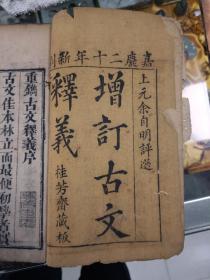 嘉慶二十年新刊
上元余自明評選
增訂古文
釋義
桂芳齋藏板
重鐫古文釋義序
古文佳本林立而最便初學者莫